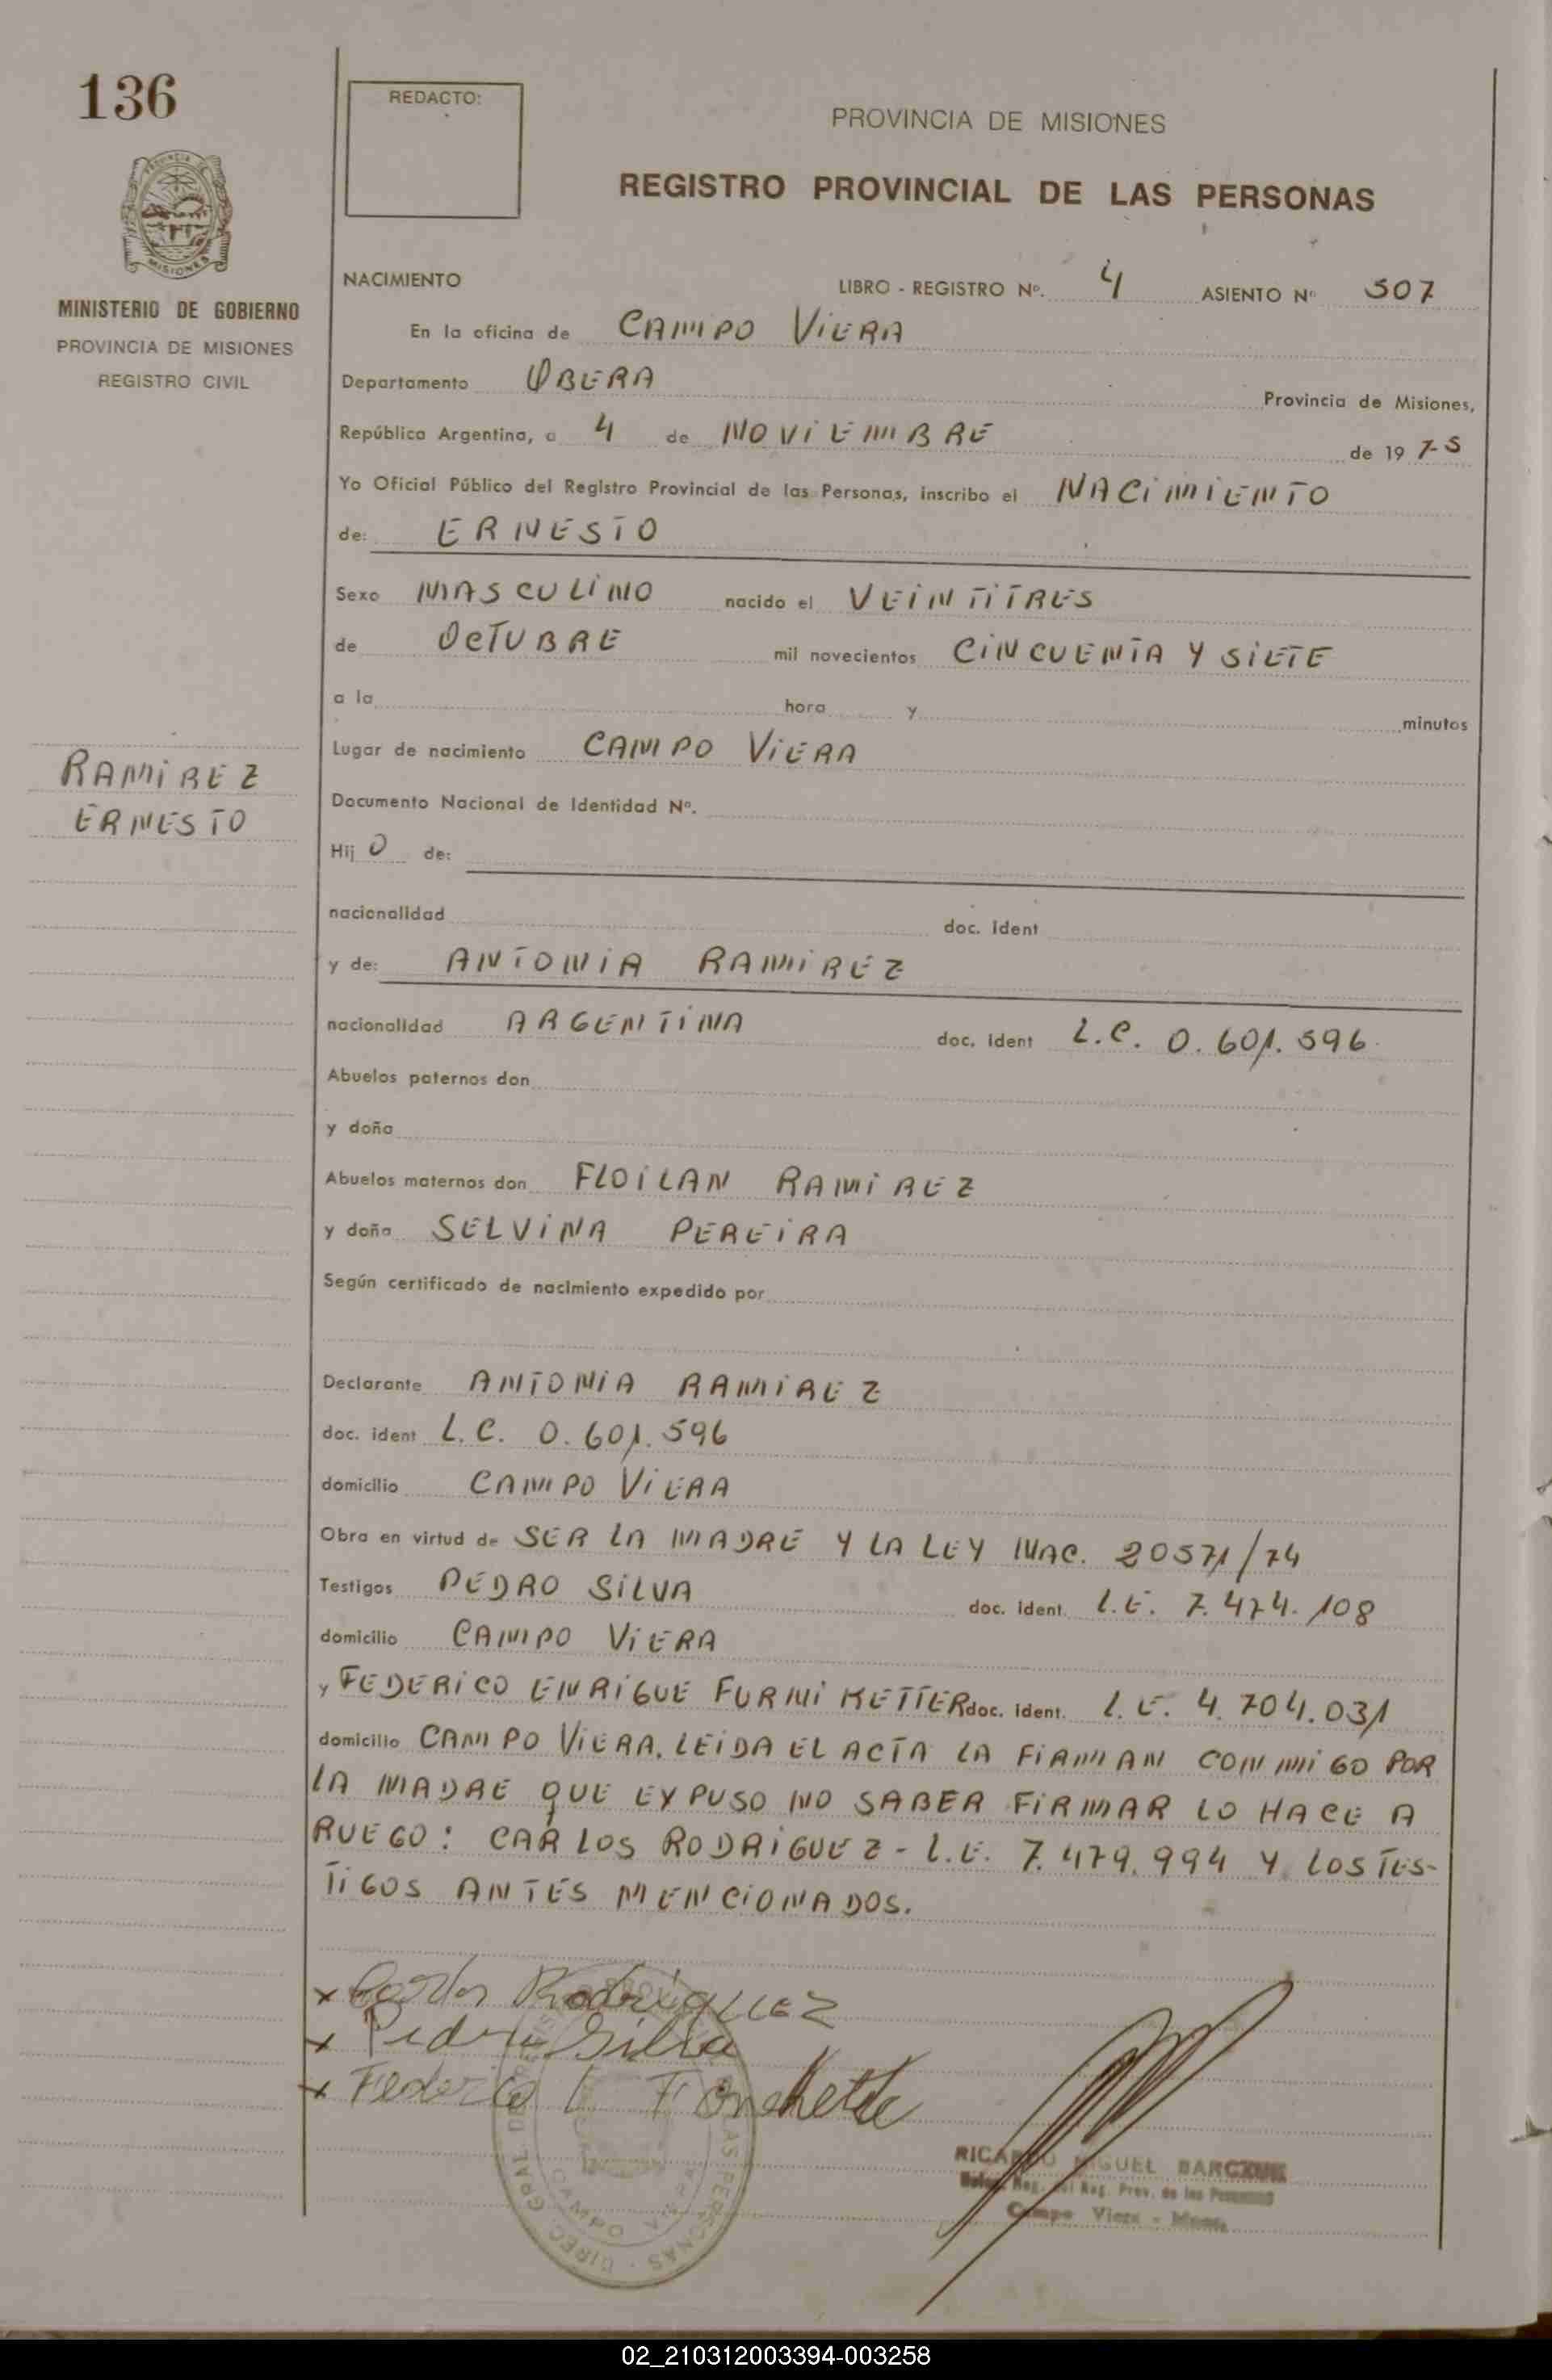 136
REDACTO:
PROVINCIA DE MISIONES
REGISTRO PROVINCIAL DE LAS PERSONAS
MISIONES
MINISTERIO DE GOBIERNO
PROVINCIA DE MISIONES
REGISTRO CIVIL
NACIMIENTO LIBRO - REGISTRO Nº. 4 ASIENTO Nº 507
En la oficina de CAMPO VIERA
Departamento OBERA Provincia de Misiones,
República Argentina, a 4 de NOVIEMBRE de 19 75
Yo Oficial Público del Registro Provincial de las Personas, inscribo el NACIMIENTO
de: ERNESTO
Sexo MASCULINO nacido el VEINTITRES
de OCTUBRE mil novecientos CINCUENTA Y SIETE
a la hora y minutos
Lugar de nacimiento CAMPO VIERA
RAMIREZ
ERNESTO
Documento Nacional de Identidad Nº.
Hij O de:
nacionalidad doc. ident
y de: ANTONIA RAMIREZ
nacionalidad ARGENTINA doc. ident L.C. 0.601.596
Abuelos paternos don
y doña
Abuelos maternos don FLOILAN RAMIREZ
y doña SELVINA PEREIRA
Según certificado de nacimiento expedido por
Declarante ANTONIA RAMIREZ
doc. ident L.C. 0.601.596
domicilio CAMPO VIERA
Obra en virtud de SER LA MADRE Y LA LEY NAC. 20571/74
Testigos PEDRO SILVA doc. ident. L.E. 7.474.108
domicilio CAMPO VIERA
y FEDERICO ENRIGUE FURNIKETTER doc. ident. L.E. 4.704.031
domicilio CAMPO VIERA. LEIDA EL ACTA LA FIRMAN CONMIGO POR
LA MADRE QUE EXPUSO NO SABER FIRMAR LO HACE A
RUEGO: CARLOS RODRIGUEZ - L.E. 7.479.994 Y LOS TES-
TIGOS ANTES MENCIONADOS.
x Carlos Rodriguez
x Pedro Silva
x Federico
RICARDO MIGUEL
Reg. del Reg. Prov. de las Personas
Campo Viera - Mnes.
DIREC. GRAL. DE LAS PERSONAS
CAMPO VIERA
02_210312003394-003258